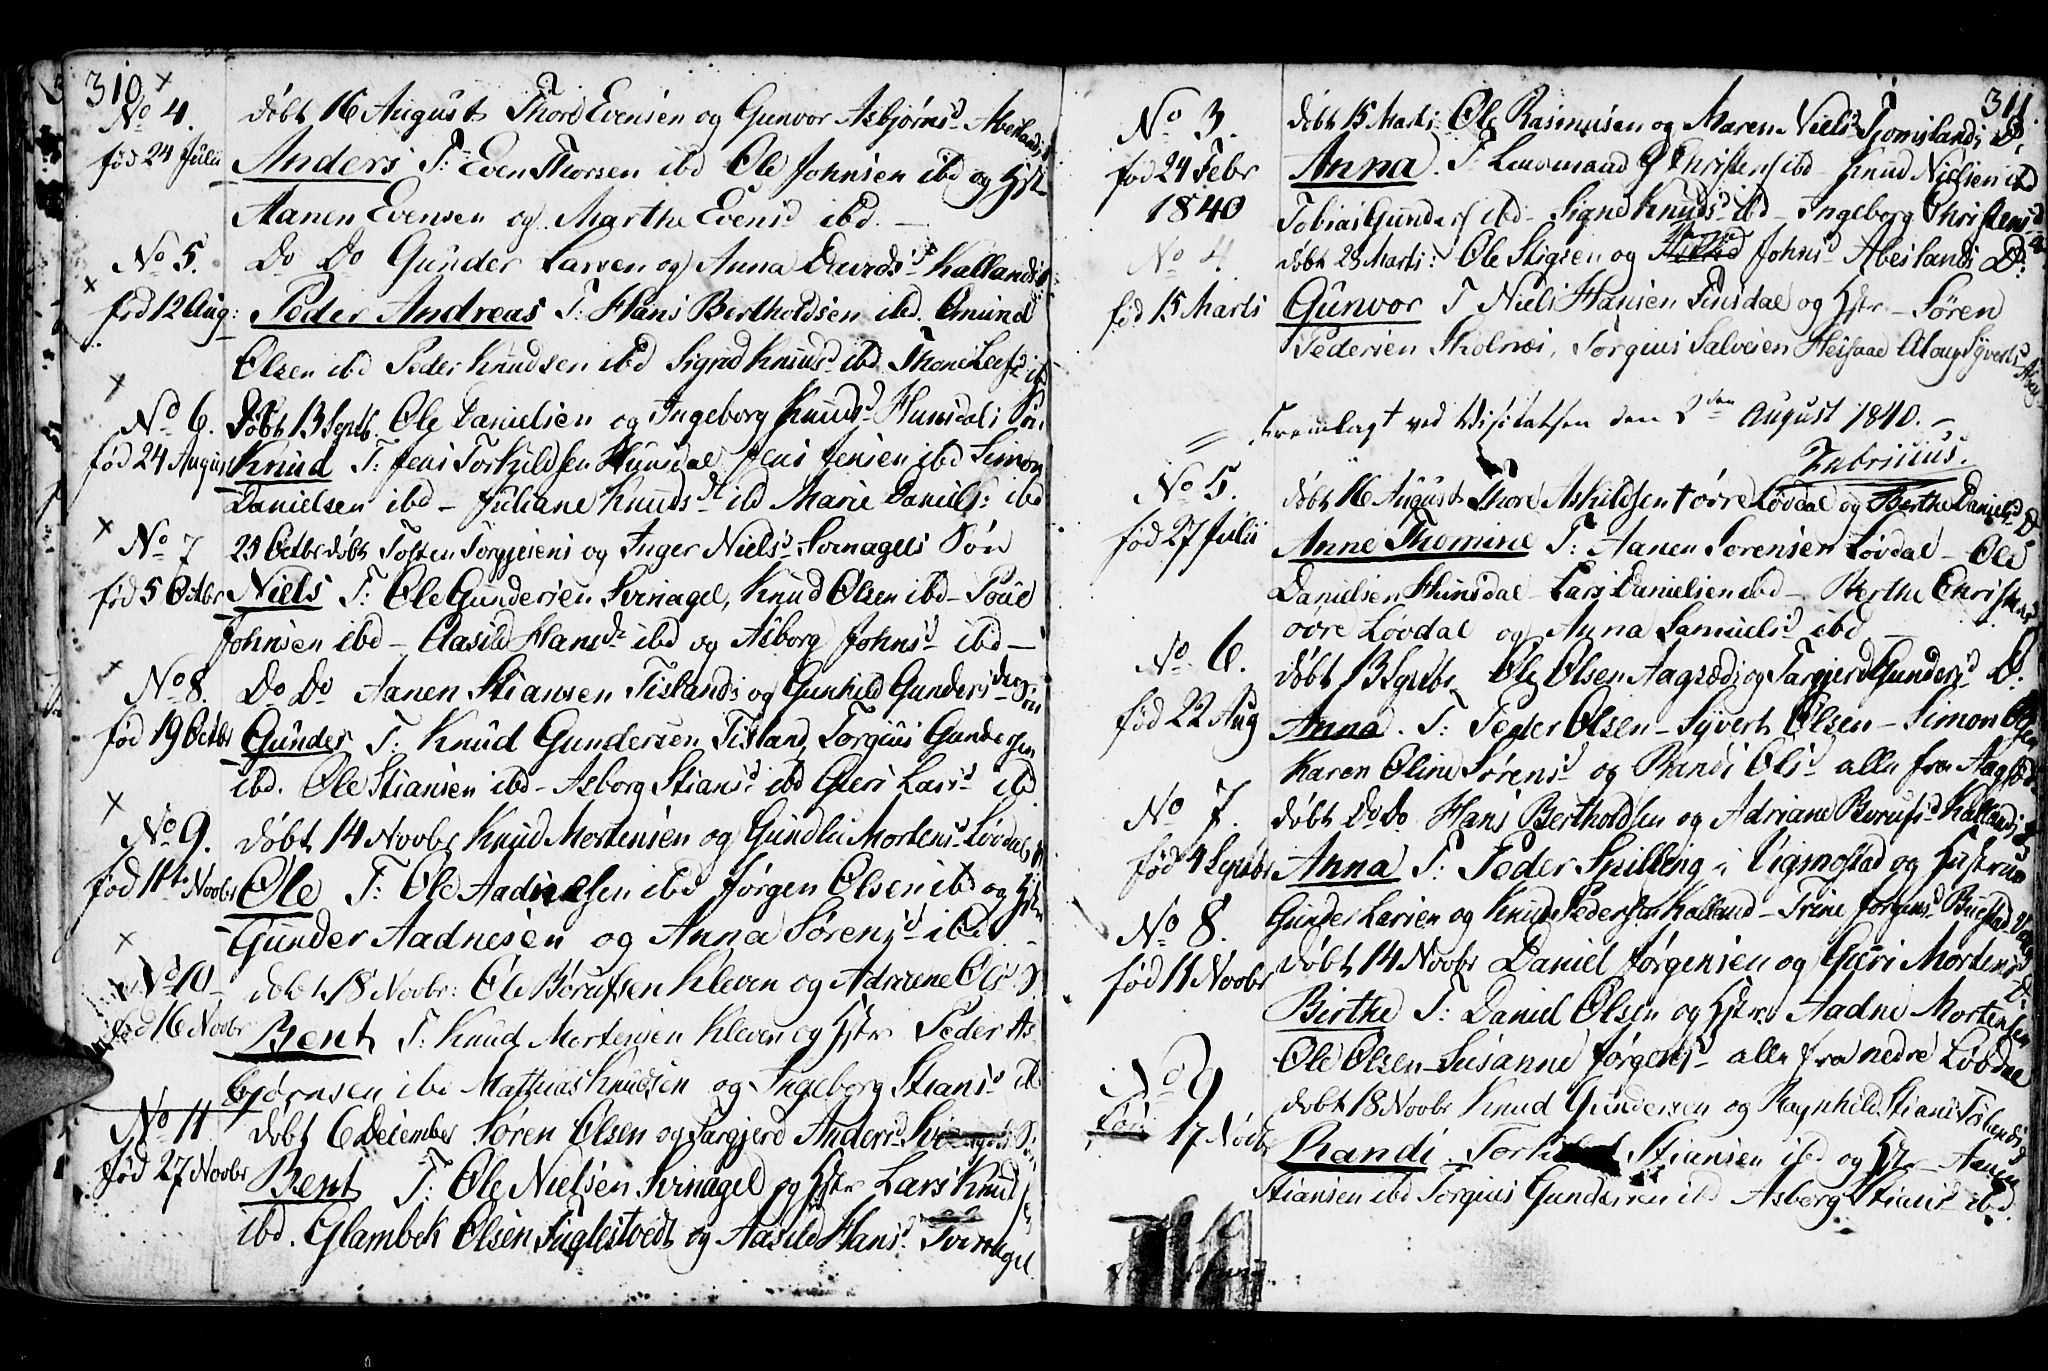 310
No 4.
fød 24 Julii
døbt 16 August Thore Evensen og Gunvor Asbjørnsd Abelands
Anders T: Even Thorsen ibd Ole Johnsen ibd og Hstr
Aanen Evensen og Marthe Evensd ibd. —
No 5.
fød 12 Aug:
Do Do Gunder Larsen og Anna Davidsd Kallands
Peder Andreas T: Hans Bertholdsen ibd. Omund
Olsen ibd Peder Knudsen ibd Sigrid Knudsd ibd Thone
No 6.
fød 24 August
Døbt 13 Septb. Ole Danielsen og Ingeborg Knudsd Hunsdals Søn
Knud T: Jens Torkildsen Hunsdal Jens Jensen ibd Simon
Danielsen ibd – Juliane Knudsd ibd Marie Daniels: ibd
No 7
fød 5 Octbr
25 Octbr døbt Tosten Torgjesens og Inger Nielsd Svinagels Søn
Niels T: Ole Gundersen Svinagel, Knud Olsen ibd – Poul
Johnsen ibd – Aasild Hansd ibd og Asborg Johnsd ibd —
No 8.
fød 19 Octbr
Do Do Aanen Stiansen Tislands og Gunhild Gundersd Søn
Gunder T: Knud Gundersen Tisland, Torgius Gundersen
ibd. Ole Stiansen ibd – Asborg Stiansd ibd Guri Larsd ibd
No 9.
fød 11te Novbr
døbt 14 Novbr Knud Mortensen og Gundlu Mortensd Løvdals
Ole T: Ole Aadnesen ibd Jørgen Olsen ibd og Hstr
Gunder Aadnesen og Anna Sørensd ibd. –
No 10
fød 16 Novbr
døbt 18 Novbr: Ole Børufsen Kleven og Adriane Olsd
Bent T: Knud Mortensen Kleven og Hstr Peder As-
bjørnsen ibd Mathias Knudsen og Ingeborg Stiansd ibd
No 11
fød 27 Novbr
døbt 6 December Søren Olsen og Targjerd Andersd
Bent T: Ole Nielsen Svinagel og Hstr Lars Knuds
ibd. Glambek Olsen Fuglestvedt og Aasild Hansd: Svinagel
311
No 3.
fød 24 Febr
1840
døbt 15 Marti: Ole Rasmusen og Maren Nielsd Tjomslands D.
Anna. T. Lensmand G Christens ibd – Knud Nielsen ibd
Tobias Gunders ibd – Signe Knudsd ibd – Ingeborg Christensd
No 4.
fød 15 Marti
døbt 28 Marti: Ole Stigsen og Johnsd Abelands D:
Gunvor T Niels Hansen Finsdal og Hstr – Søren
Pedersen Skolnes, Torgius Salvesen Heisaae Aloug Syvertsd
Fremlagt ved Visitatsen den 2den August 1840. –
Fabricius.
No 5.
fød 27 Julii
døbt 16 August Thore Askildsen øvre Løvdal og Berthe Danielsd D.
Anne Thomine T: Aanen Sorensen Løvdal – Ole
Danielsen Hunsdal – Lars Danielsen ibd – Berthe Christensd
ovre Løvdal og Anna Samuelsd ibd –
No 6.
fød 22 Aug
døbt 13 Septbr Ole Olsen Aagsæds og Targjerd Gundersd D.
Anna. T: Peder Olsen – Syvert Olsen – Simon Olsen
Karen Oline Sørensd og Randi Olsd alle fra Aagsæd
No 7.
fød 4 Septbr
døbt Do Do Hans Bertholdsen og Adriane Børufsd Kallands
Anna T: Peder Spilling i Vigmostad og Hustrue
Gunder Larsen og Knud Pedersen Kalland – Trine Jørgensd
No 8.
fød 11 Novbr
døbt 14 Novbr Daniel Jørgensen og Guri Mortensd D:
Birthe T: Daniel Olsen og Hstr. Aadne Mortensen
Ole Olsen – Susanne Jørgensd – alle fra nedre Løvdal
No 9
fød 17 Novbr
døbt 18 Novbr Knud Gundersen og Raynhild Stiansd Tislands
Randi. Stiansen ibd og Hstr – Aanen
Stiansen ibd Torgius Gundersen ibd Asberg Stiansd ibd.